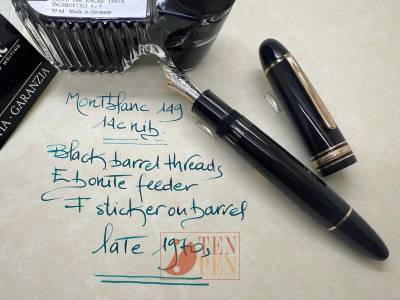 ENCRE TINTA
INCHIOSTRO
50 ml - Made in Germany
WRITING
GARANZIA
Montblanc 149
14c nib
Black barrel threads
Ebonite feeder
F sticker on barrel
late 1970s
TEN
PEN